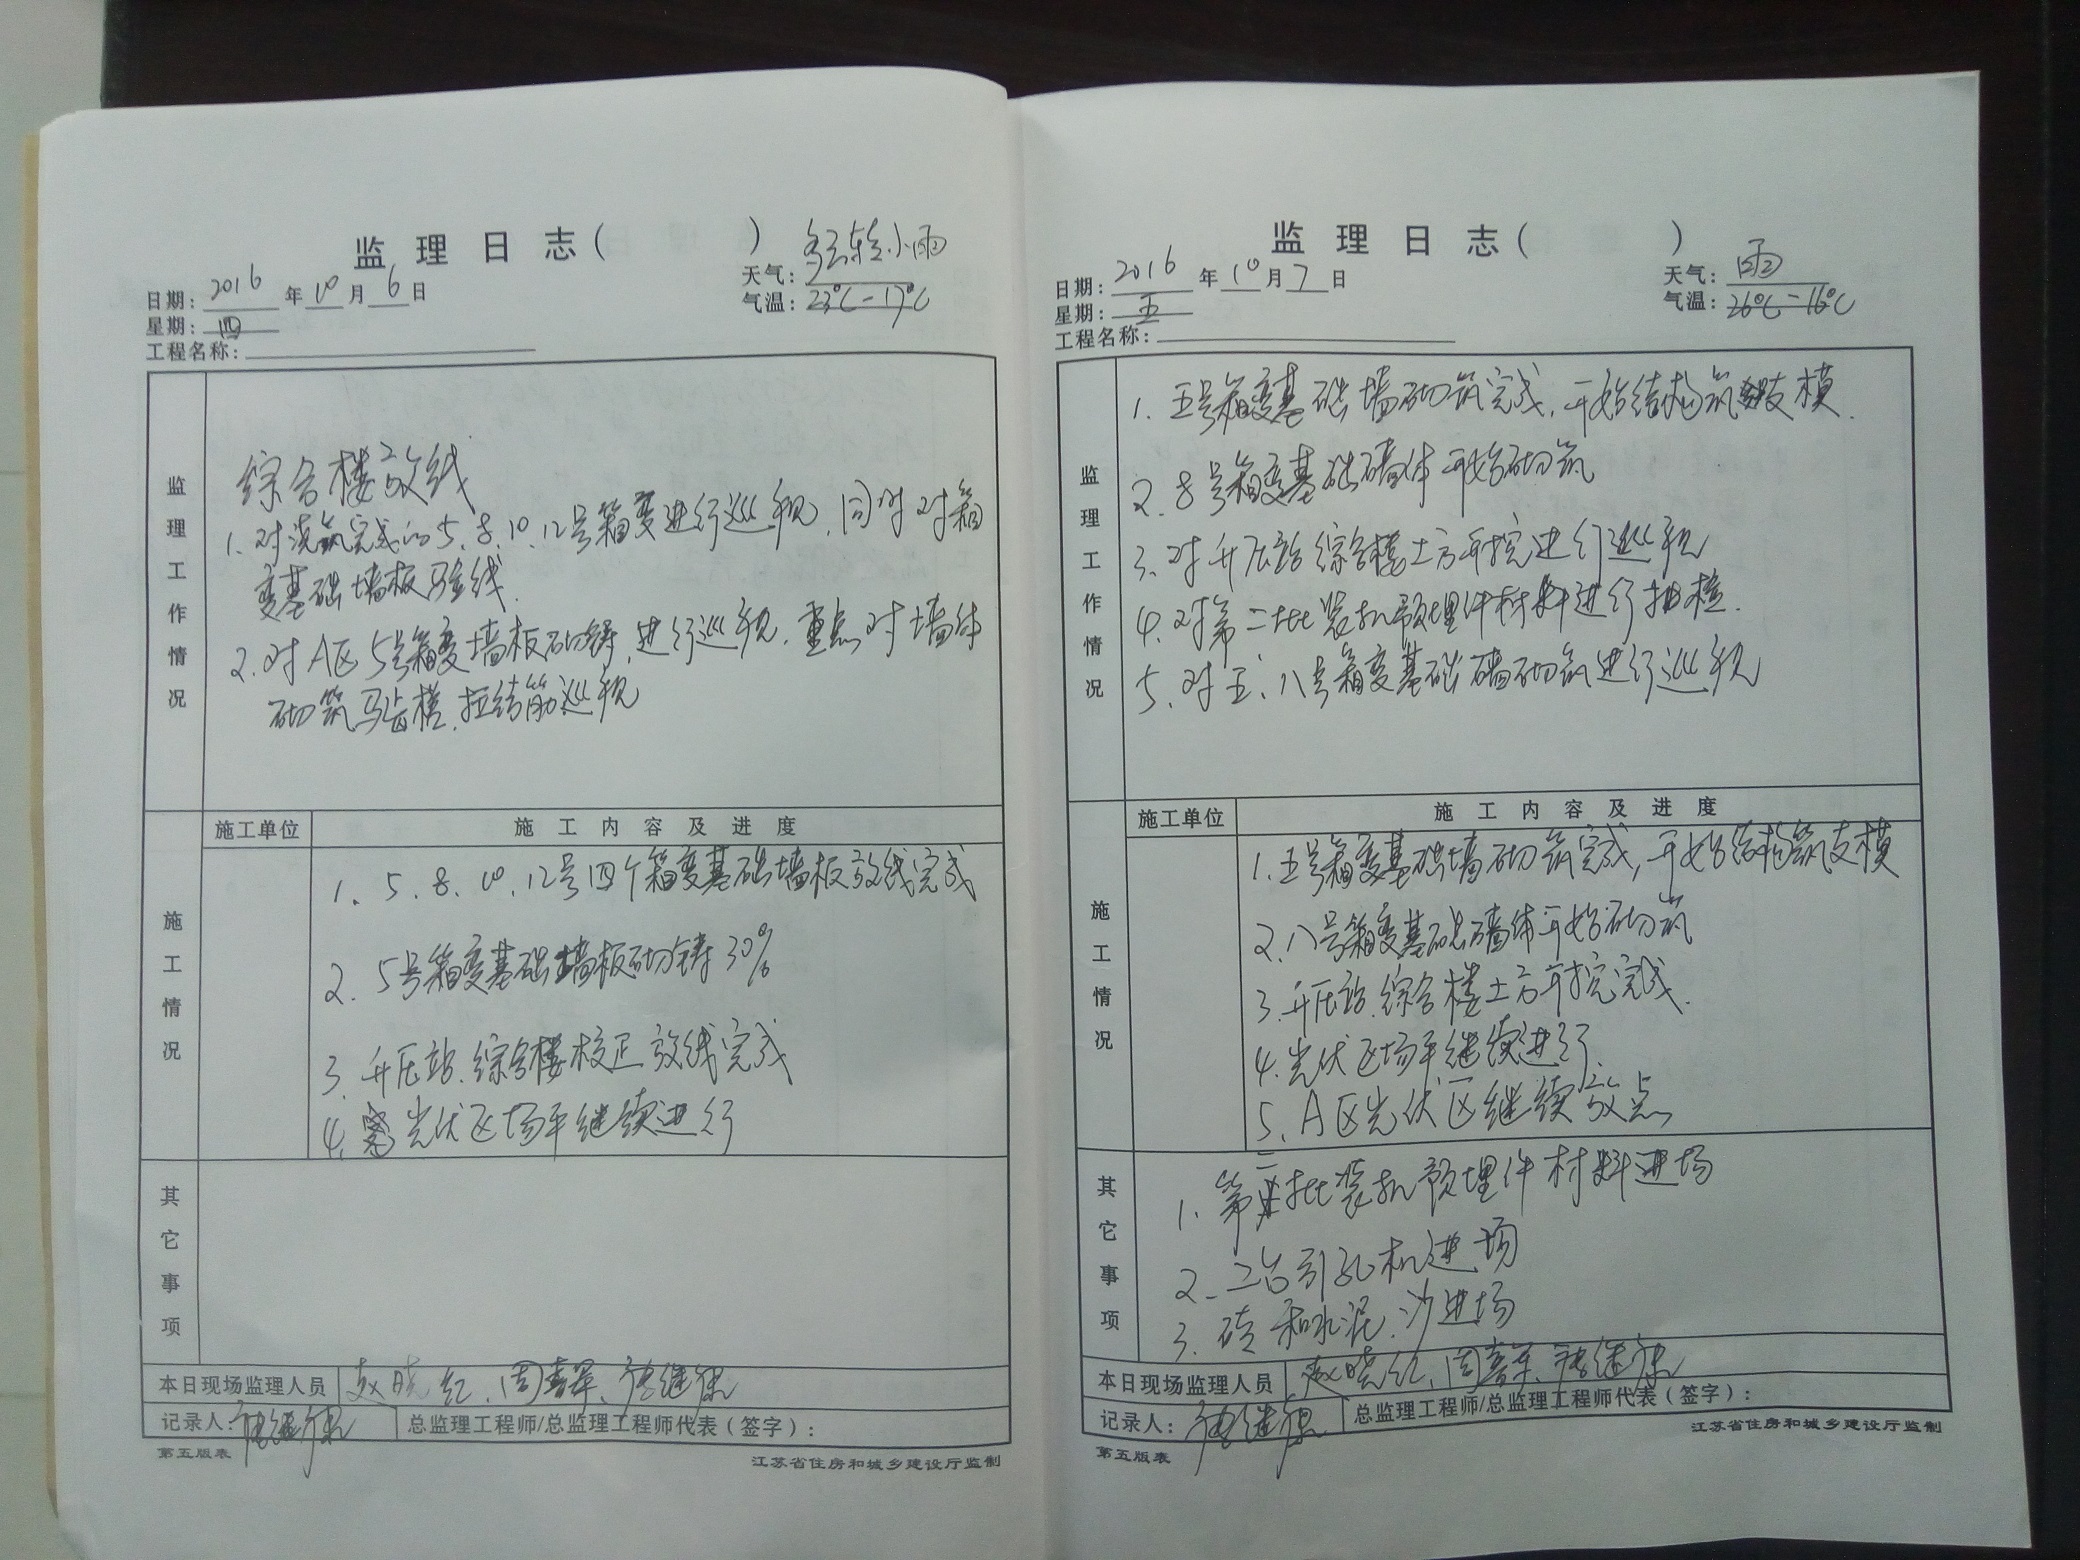 监理日志( )
日期：2016年10月6日
天气：多云转小雨
星期：四
气温：23℃-17℃
工程名称：
监理工作情况
综合楼放线
1.对浇筑完成的5、8、10、12号箱变进行巡视，同时对箱
变基础墙板验线.
2.对A区5号箱变墙板砌铸进行巡视.重点对墙体
砌筑马齿槎、拉结筋巡视
施工情况
施工单位 施工内容及进度
1、5、8、10、12号四个箱变基础墙板放线完成
2、5号箱变基础墙板砌铸30%
3、升压站、综合楼校正放线完成
4、光伏区场平继续进行
其它事项
本日现场监理人员 赵晓红、周喜军、继保
记录人：继保 总监理工程师/总监理工程师代表（签字）：
第五版表 江苏省住房和城乡建设厅监制
监理日志( )
日期：2016年10月7日
天气：雨
星期：五
气温：26℃-16℃
工程名称：
监理工作情况
1.五号箱变基础墙砌筑完成，开始结构筑支模.
2.8号箱变基础墙体开始砌筑
3、对升压站综合楼土方开挖进行巡视
4、对第二批装机预埋件材料进行抽检.
5、对五、八号箱变基础墙砌筑进行巡视
施工情况
施工单位 施工内容及进度
1.五号箱变基础墙砌筑完成，开始结构筑支模
2.八号箱变基础墙体开始砌筑
3.升压站.综合楼土方开挖完成.
4.光伏区场平继续进行.
5、A区光伏区继续放点
其它事项
1、第二批装机预埋件材料进场
2、二台引孔机进场
3、砖和水泥、沙进场
本日现场监理人员 赵晓红、周喜军、继保
记录人：继保 总监理工程师/总监理工程师代表（签字）：
第五版表 江苏省住房和城乡建设厅监制